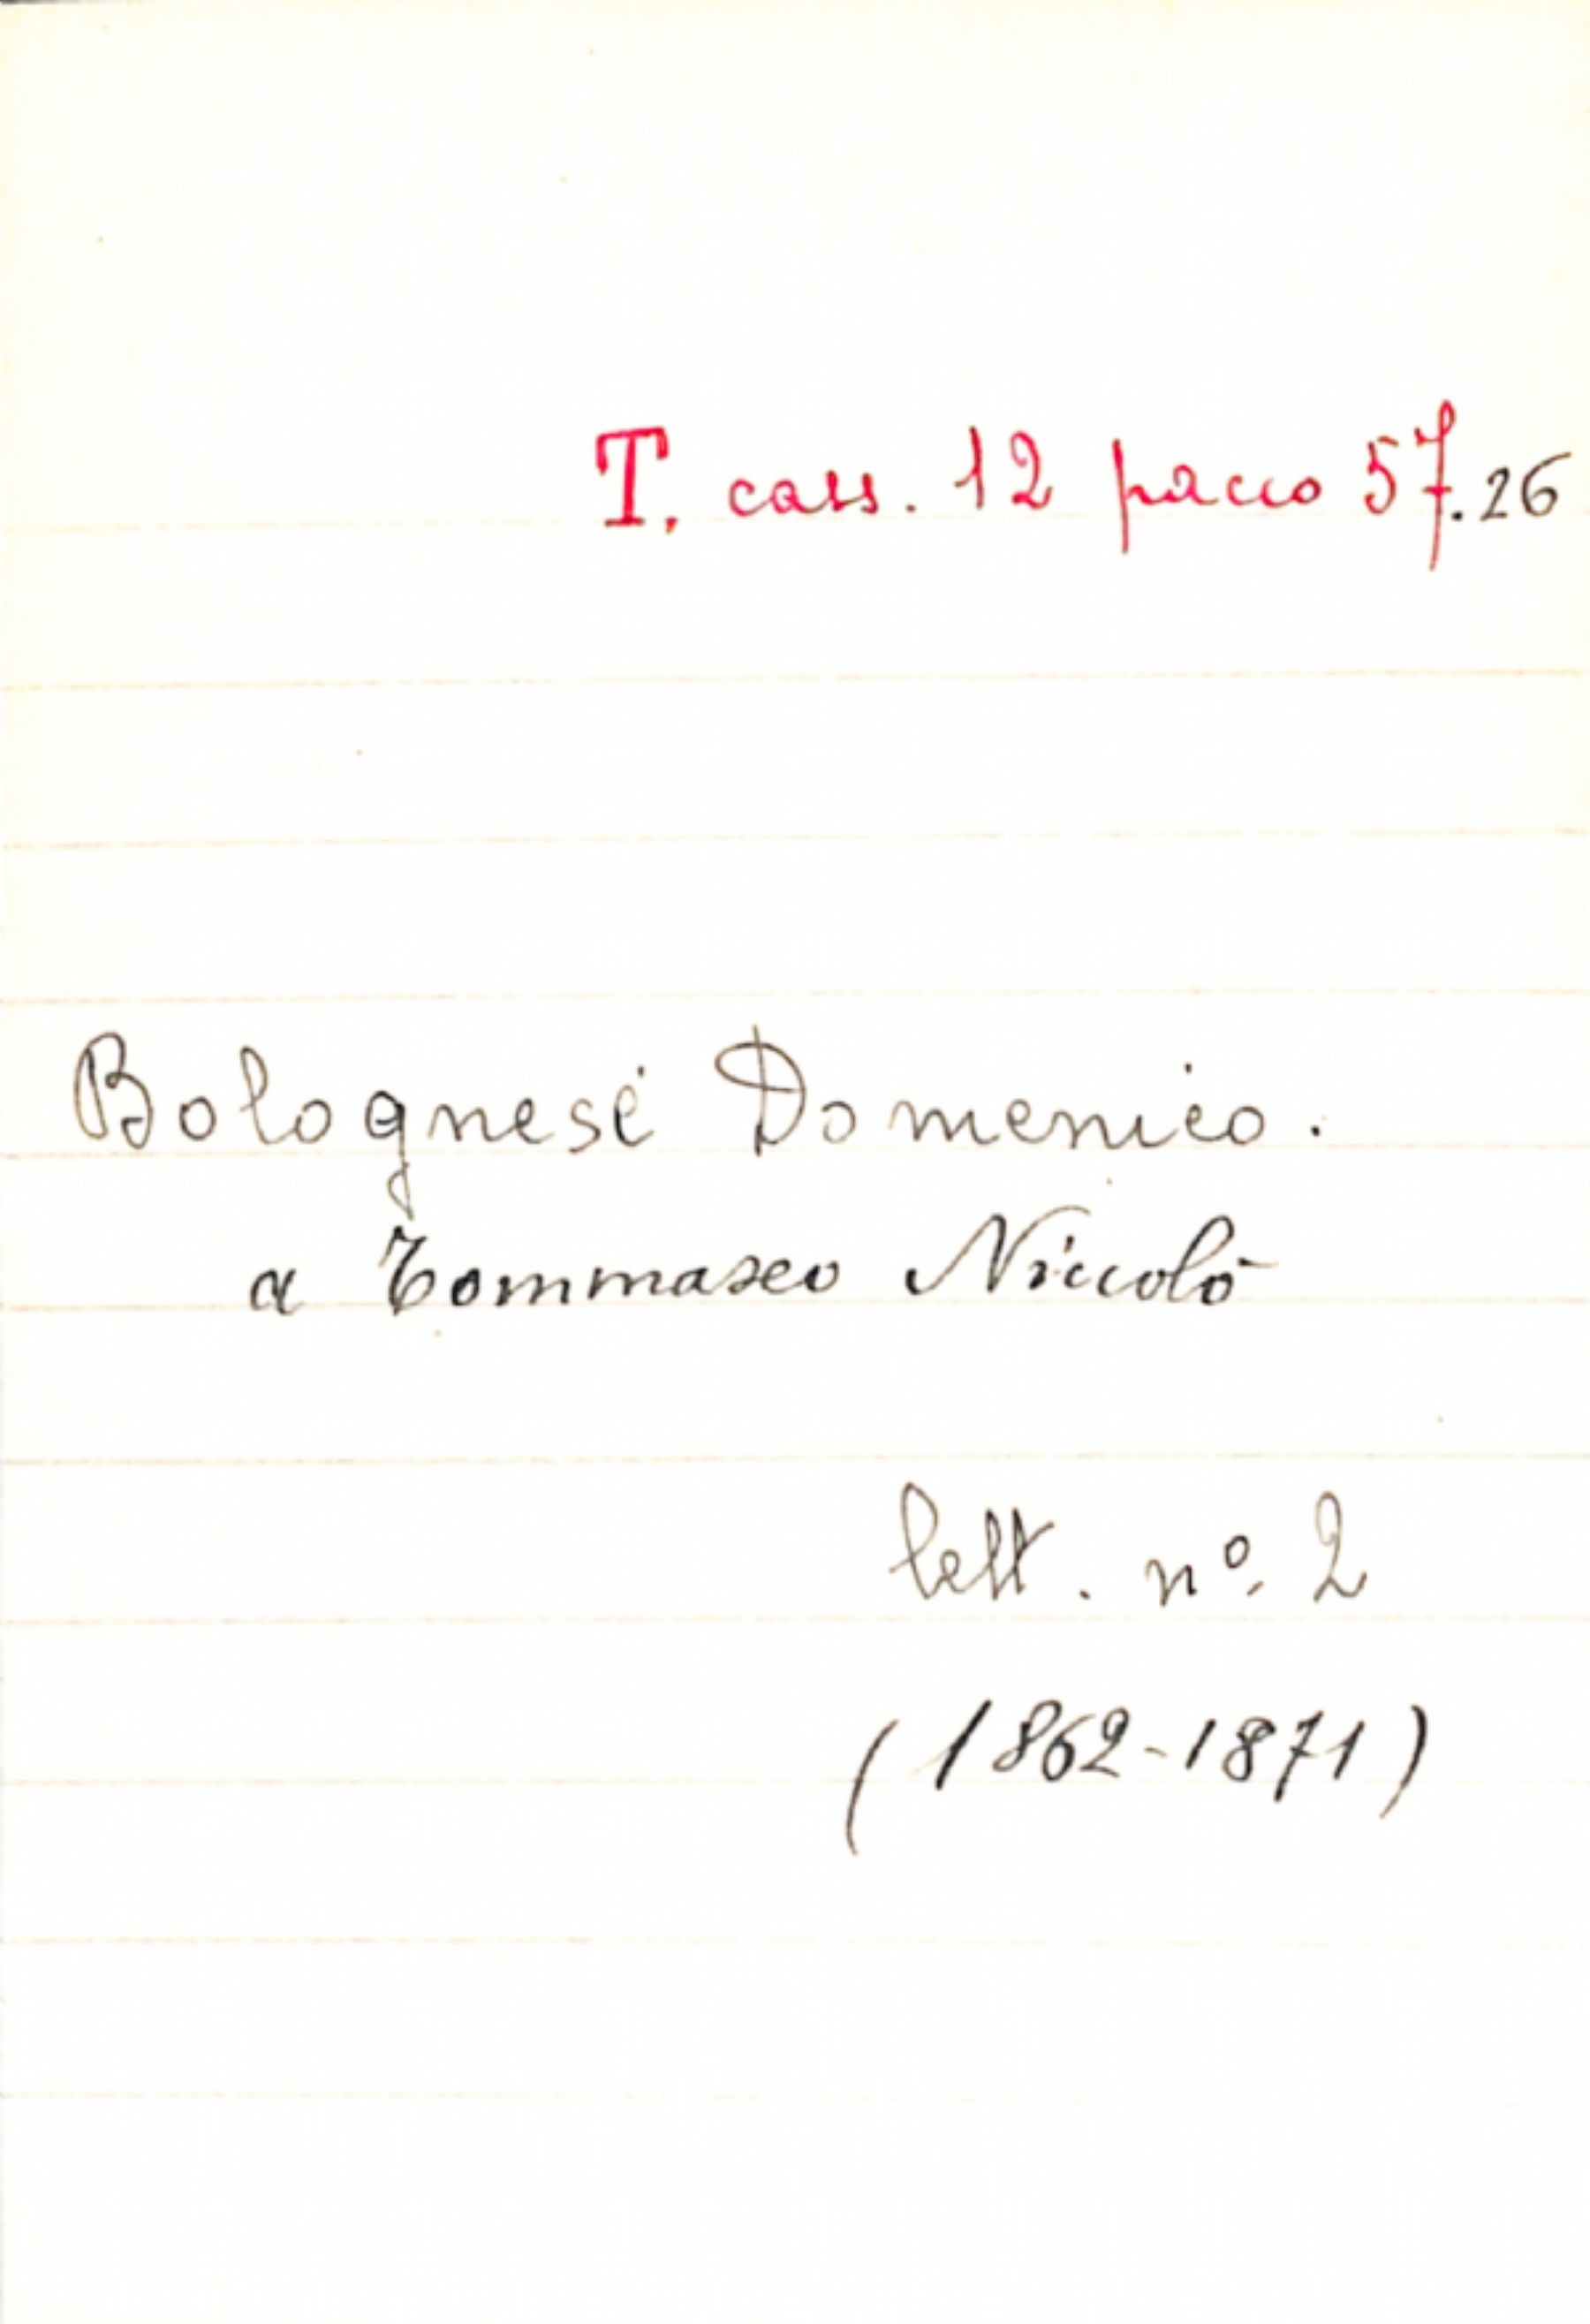 T. cass. 12 pacco 57.26
Bolognesi Domenico.
a Tommaseo Niccolò
lett. nº. 2
(1862-1871)